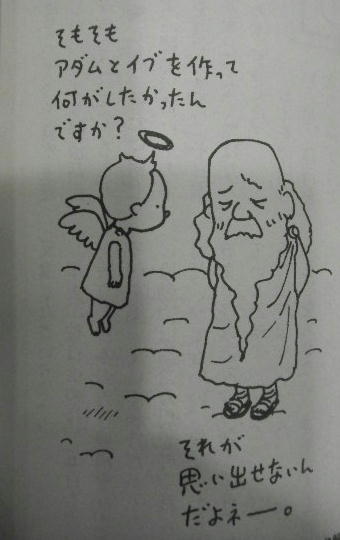 そもそも
アダムとイブを作って
何がしたかったん
ですか?
それが
思い出せないん
だよネー。